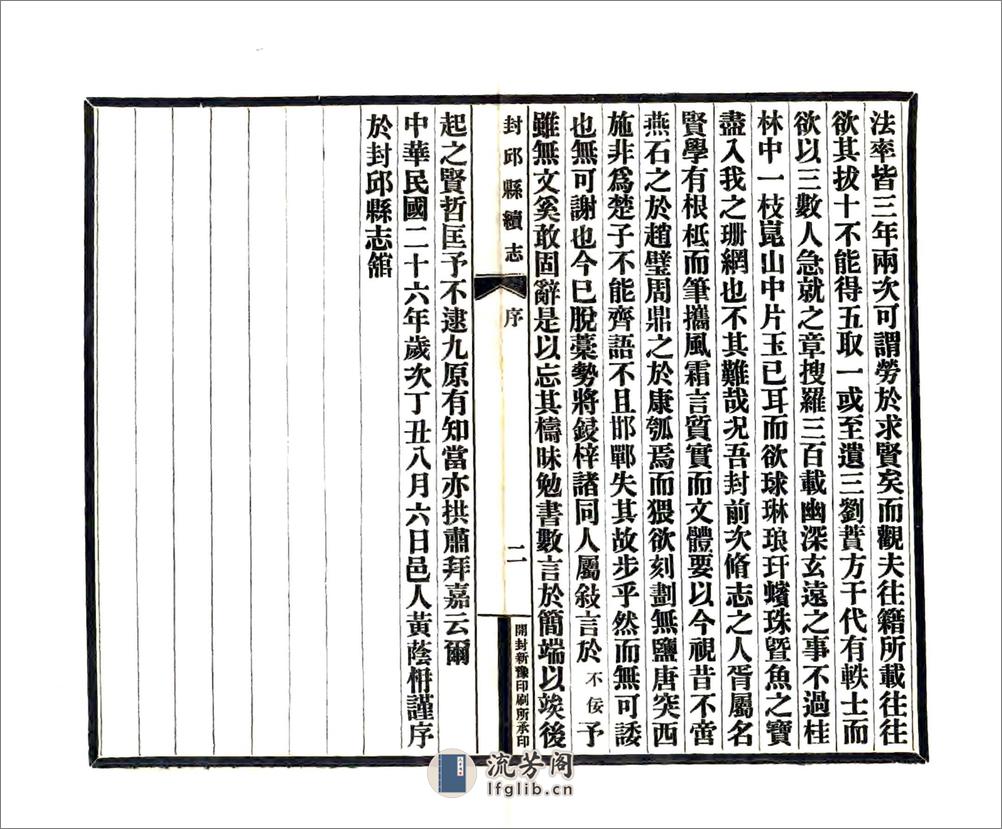 法率皆三年兩次可謂勞於求賢矣而觀夫往籍所載往往
欲其拔十不能得五取一或至遺三劉蕡方干代有軼士而
欲以三數人急就之章搜羅三百載幽深玄遠之事不過桂
林中一枝崑山中片玉已耳而欲球琳琅玕蠙珠暨魚之寶
盡入我之珊網也不其難哉况吾封前次脩志之人胥屬名
賢學有根柢而筆攜風霜言質實而文體要以今視昔不啻
燕石之於趙璧周鼎之於康瓠焉而猥欲刻劃無鹽唐突西
施非爲楚子不能齊語不且邯鄲失其故步乎然而無可諉
也無可謝也今已脫藁勢將鋟梓諸同人屬敍言於不佞予
雖無文奚敢固辭是以忘其檮昧勉書數言於簡端以竢後
封邱縣續志
序
二
開封新豫印刷所承印
起之賢哲匡予不逮九原有知當亦拱肅拜嘉云爾
中華民國二十六年歲次丁丑八月六日邑人黃蔭枏謹序
於封邱縣志舘
流芳阁
lfglib.cn